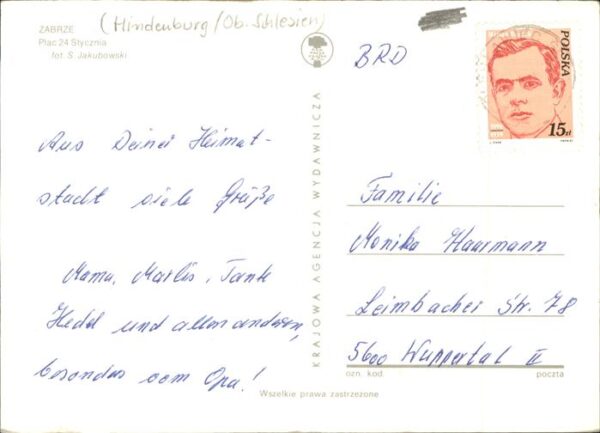 (Hindenburg/Ob. Schlesien)
ZABRZE
Plac 24 Stycznia
fot. S. Jakubowski
BRD
POLSKA
15 zł
Aus Deiner Heimat-
stadt viele Grüße
Mama, Marlis, Tante
Hedel und allen anderen,
besonders vom Opa!
KRAJOWA AGENCJA WYDAWNICZA
Familie
Monika Haarmann
Leimbacher Str. 78
5600 Wuppertal II
ozn. kod poczta
Wszelkie prawa zastrzeżone